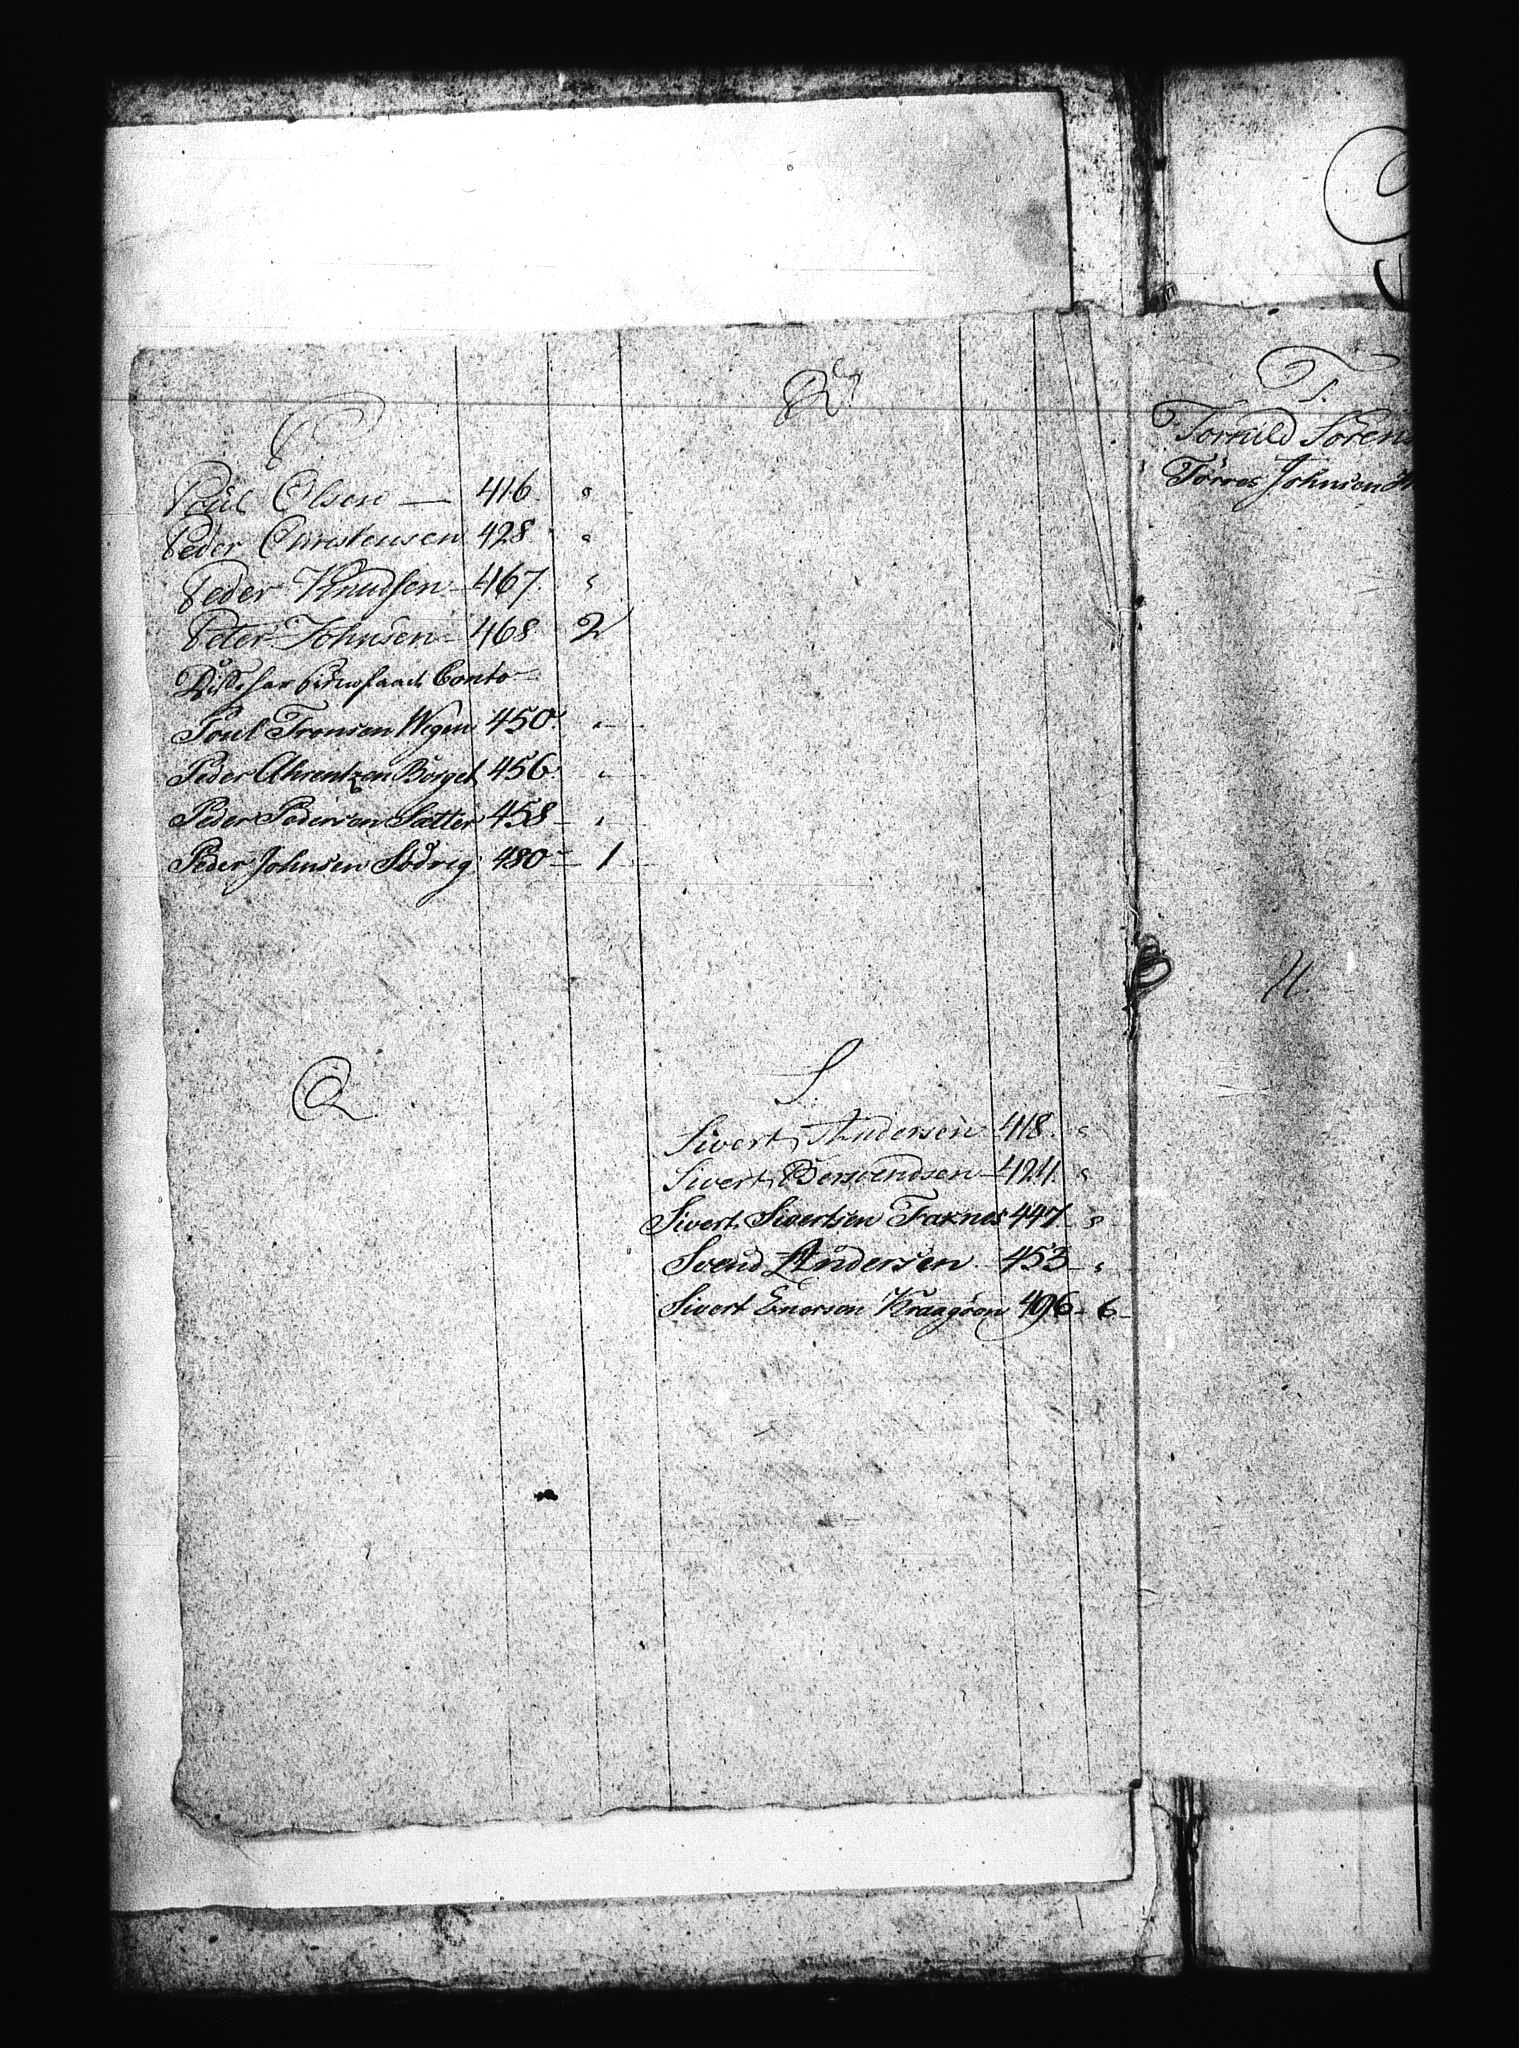 P
Poul Olsen — 416. "
Peder Christensen 428. "
Peder Knudsen - 467. "
Peter Johnsen - 468 - 2
Conto -
Poul Tronsen Wegen 450. "
Peder Ahrentzen Borget 456. "
Peder Pedersen Sætter 458 - "
Peder Johnsen Södvig 480 - 1
Q
R.
S.
Sivert Andersen - 418. "
Sivert Bersvendsen - 424. "
Sivert Sivertsen Faxnes 447 - "
Svend Andersen - 453 - "
Sivert Enersen Kraagöen 496 - 6 -
T.
Torkild Sörens
Törres Johnsen
U.